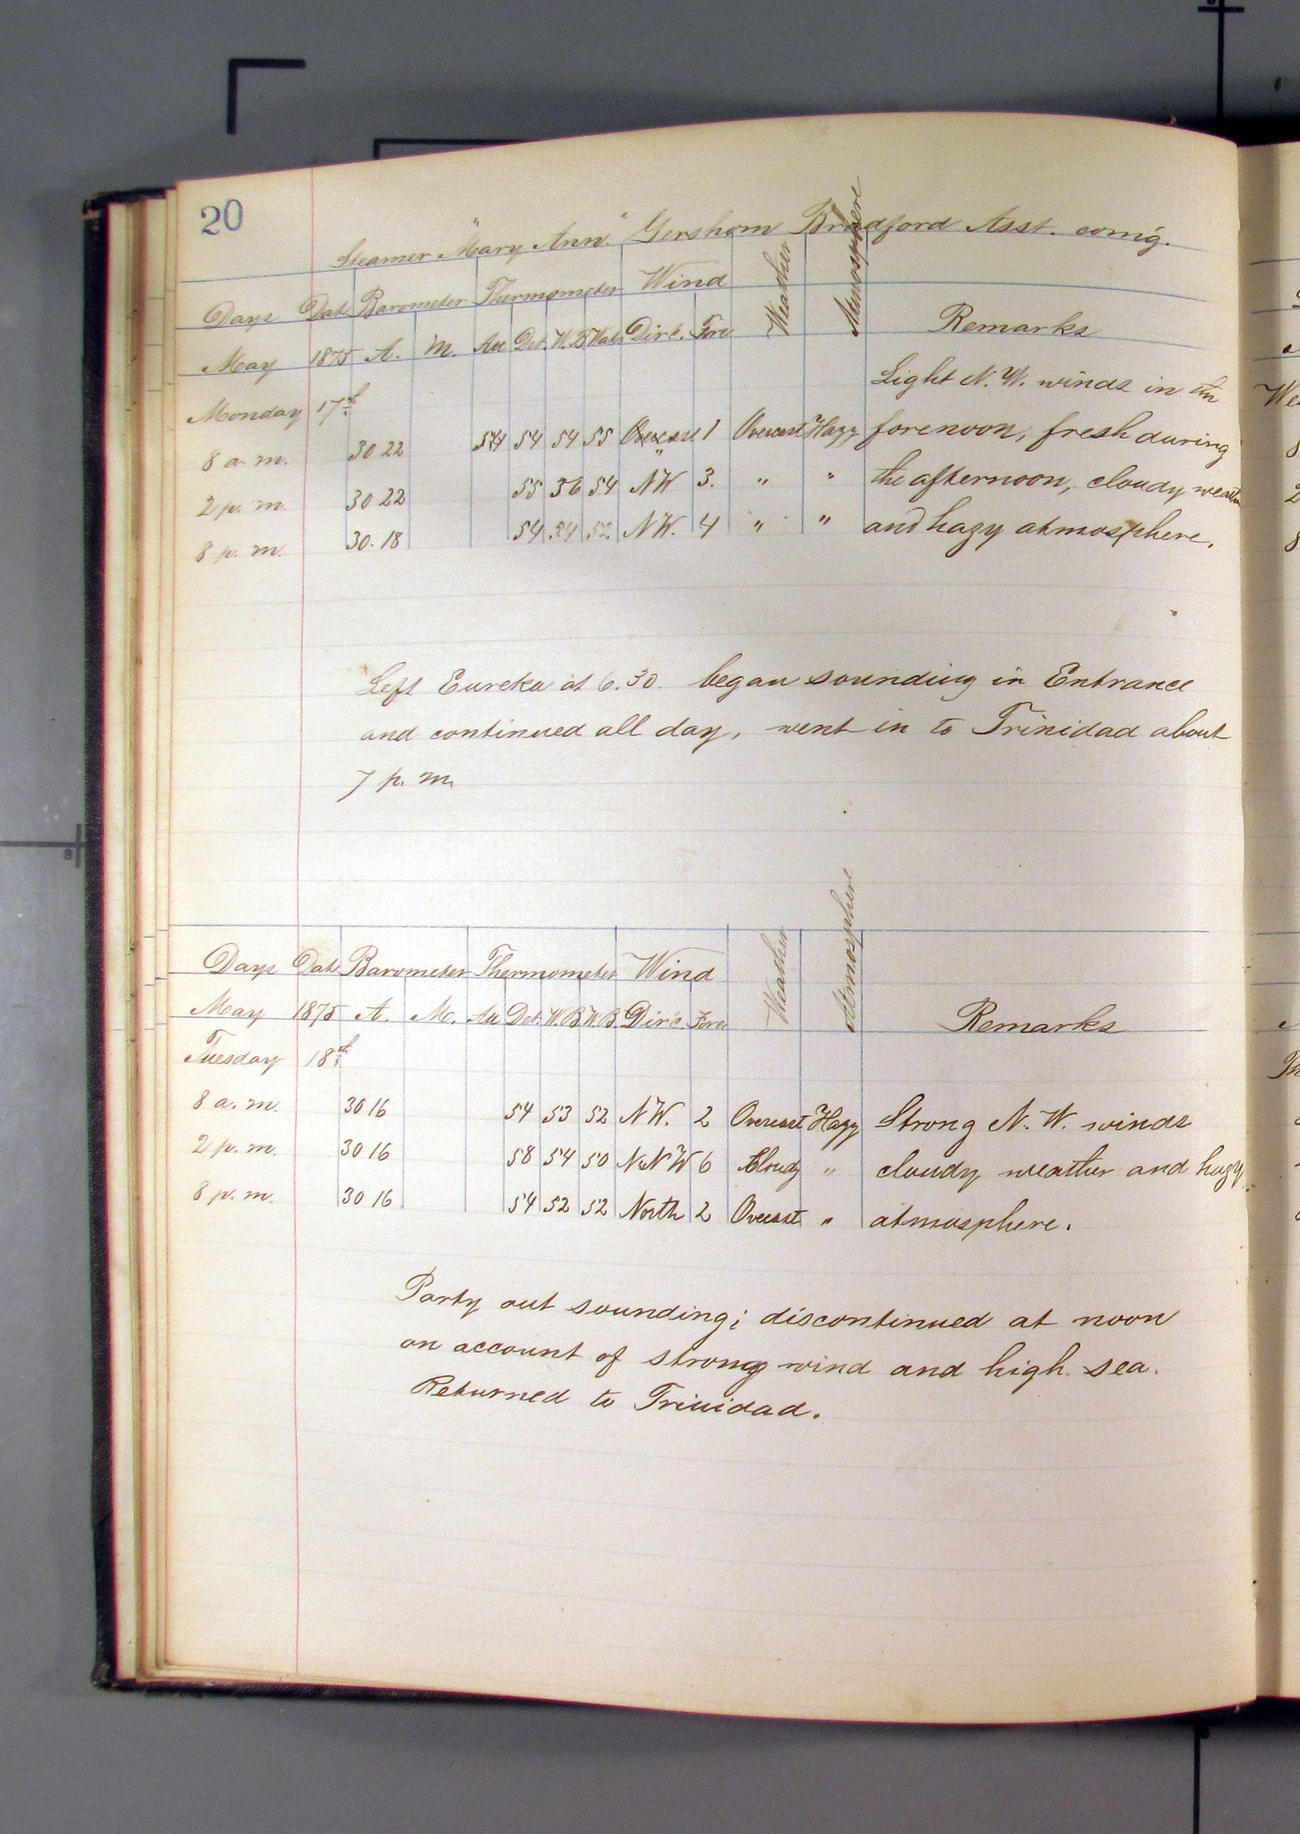 20
Steamer "Mary Ann." Gershom Bradford Asst. comg.
Days Date Barometer Thermometer Wind Weather Atmosphere Remarks
May 1875 A. M. Att Det. W.B Wate Dirc. Forc
Light N. W. winds in the
Monday 17th
8 a. m. 30 22 54 54 54 55 1 Overcast Hazy forenoon, fresh during
2 p. m. 30 22 55 56 54 NW 3. " " the afternoon, cloudy weather
8 p. m. 30.18 54 54 52 NW. 4 " " and hazy atmosphere.
Left Eureka at 6.30. began sounding in Entrance
and continued all day, went in to Trinidad about
7 p. m.
Days Date Barometer Thermometer Wind Weather Atmosphere Remarks
May 1875 A. M. Att Det. W.B W.B Dirc. Forc
Tuesday 18th
8 a. m. 30 16 54 53 52 NW. 2 Overcast Hazy Strong N. W. winds
2 p. m. 30 16 58 54 50 NNW 6 Cloudy " cloudy weather and hazy
8 p. m. 30 16 54 52 52 North 2 Overcast " atmosphere.
Party out sounding; discontinued at noon
on account of strong wind and high sea.
Returned to Trinidad.